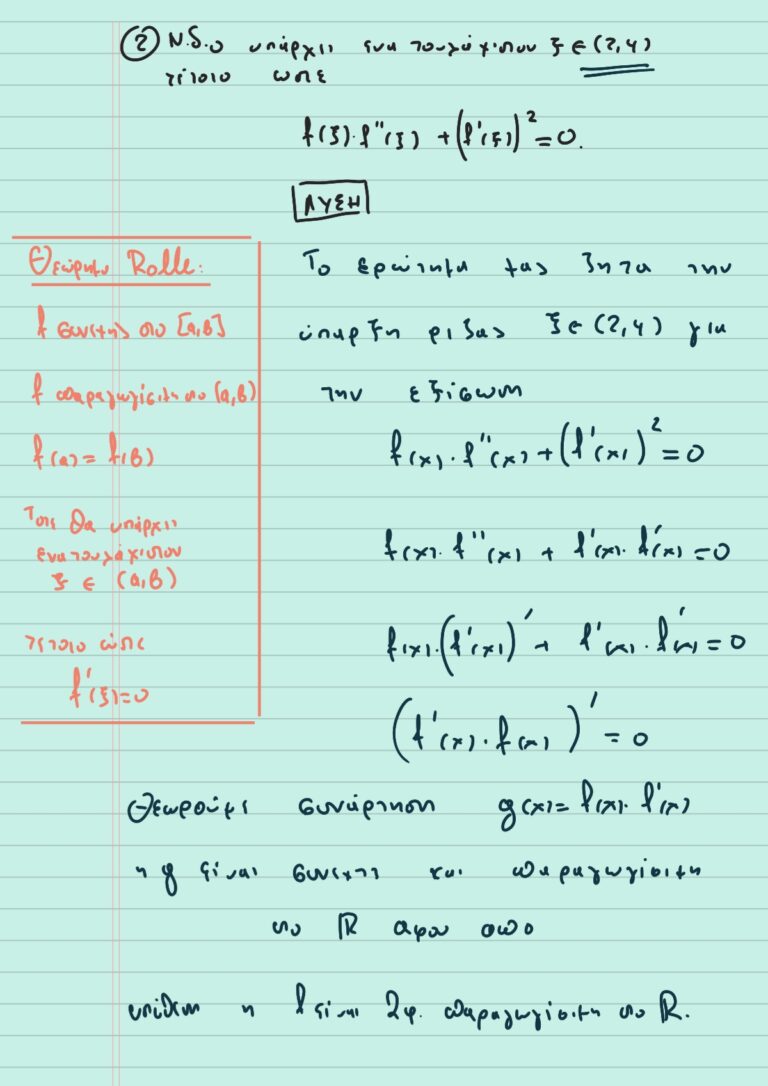 ② Ν.δ.ο υπάρχει ενα τουλάχιστον ξ ∈ (2,4)
τέτοιο ωστε
f(ξ)·f''(ξ) + (f'(ξ))² = 0.
ΛΥΣΗ
Θεώρημα Rolle:
f συνεχής στο [α,β]
f παραγωγίσιμη στο (α,β)
f(α) = f(β)
Τοτε θα υπάρχει
ενα τουλάχιστον
ξ ∈ (α,β)
τέτοιο ώστε
f'(ξ)=0
Το ερώτημα μας ζητα την
ύπαρξη ριζας ξ ∈ (2,4) για
την εξίσωση
f(x)·f''(x) + (f'(x))² = 0
f(x)·f''(x) + f'(x)·f'(x) = 0
f(x)·(f'(x))' + f'(x)·f'(x) = 0
(f'(x)·f(x))' = 0
Θεωρούμε συνάρτηση g(x) = f(x)·f'(x)
η g είναι συνεχης και παραγωγίσιμη
στο ℝ αφου απο
υπόθεση η f είναι 2φ. παραγωγίσιμη στο ℝ.